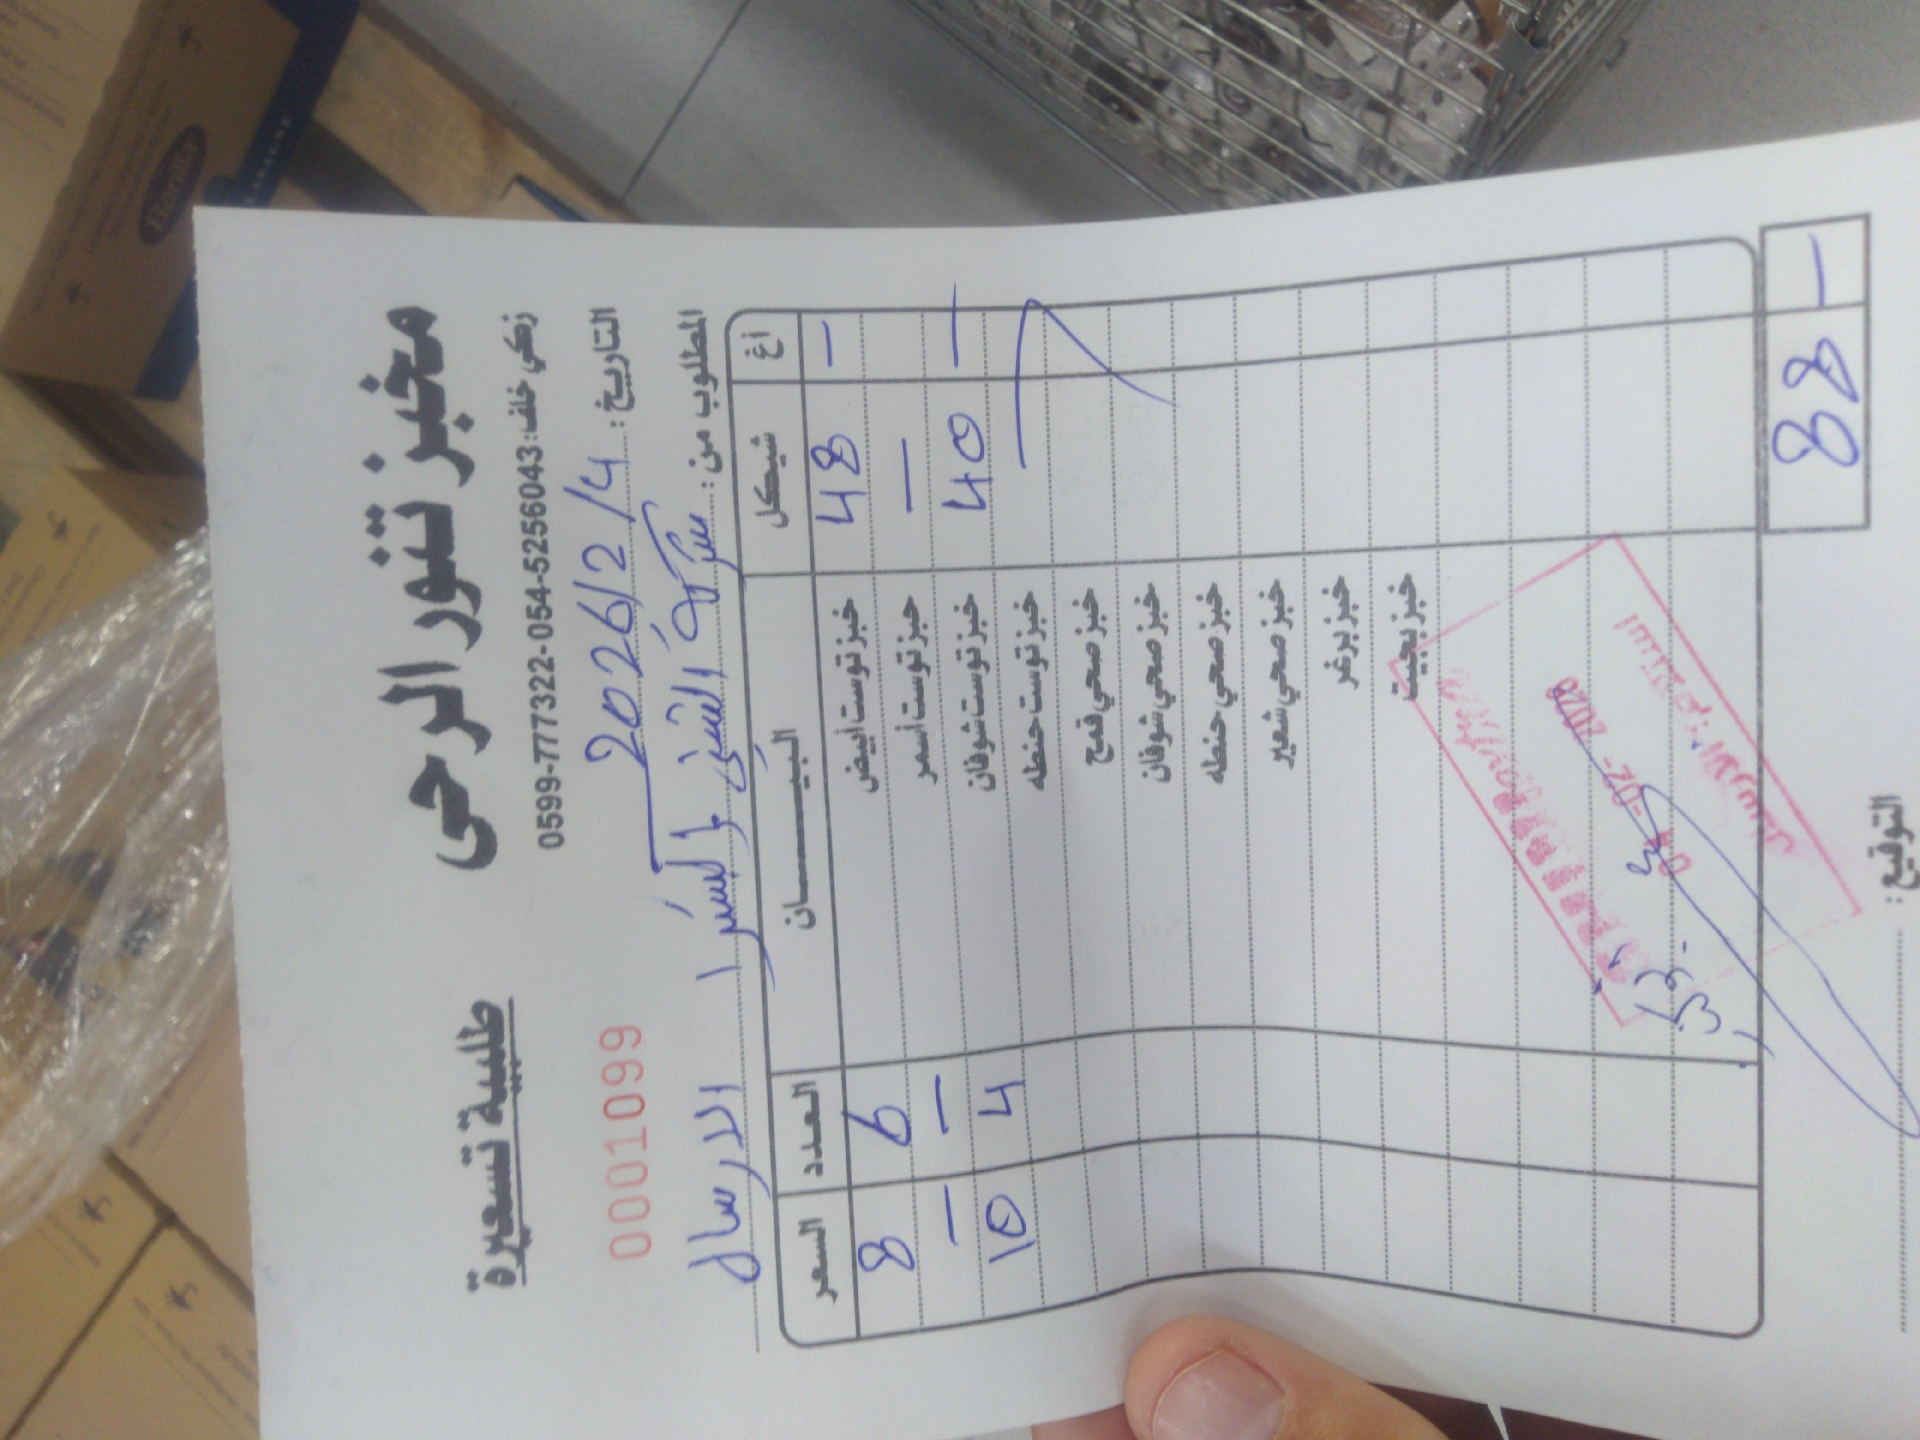 مخبز تنور الرحى
طلبية تسعيرة
زكي خلف: 0599-777322-054-5256043
التاريخ: 2026/2/4
0001099
المطلوب من: شركة الشني
الارسال
السعر العدد البيـــــــان شيكل أغ
8 6 خبز توست أبيض 48 —
— — خبز توست أسمر —
10 4 خبز توست شوفان 40 —
خبز توست حنطه
خبز صحي قمح
خبز صحي شوفان
خبز صحي حنطه
خبز صحي شعير
خبز برغر
خبز بجيت
04 -02- 2026
88 —
التوقيع:
Barilla